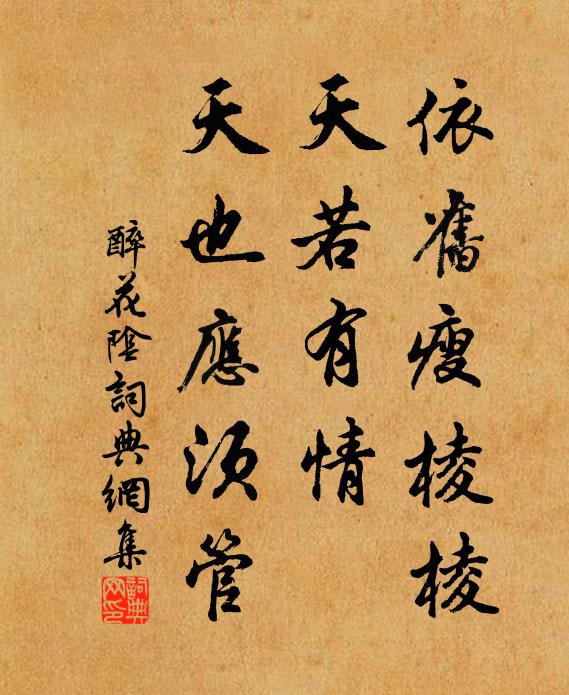 依舊瘦棱棱
天若有情
天也應須管
醉花陰詞典網集
詞典
网印